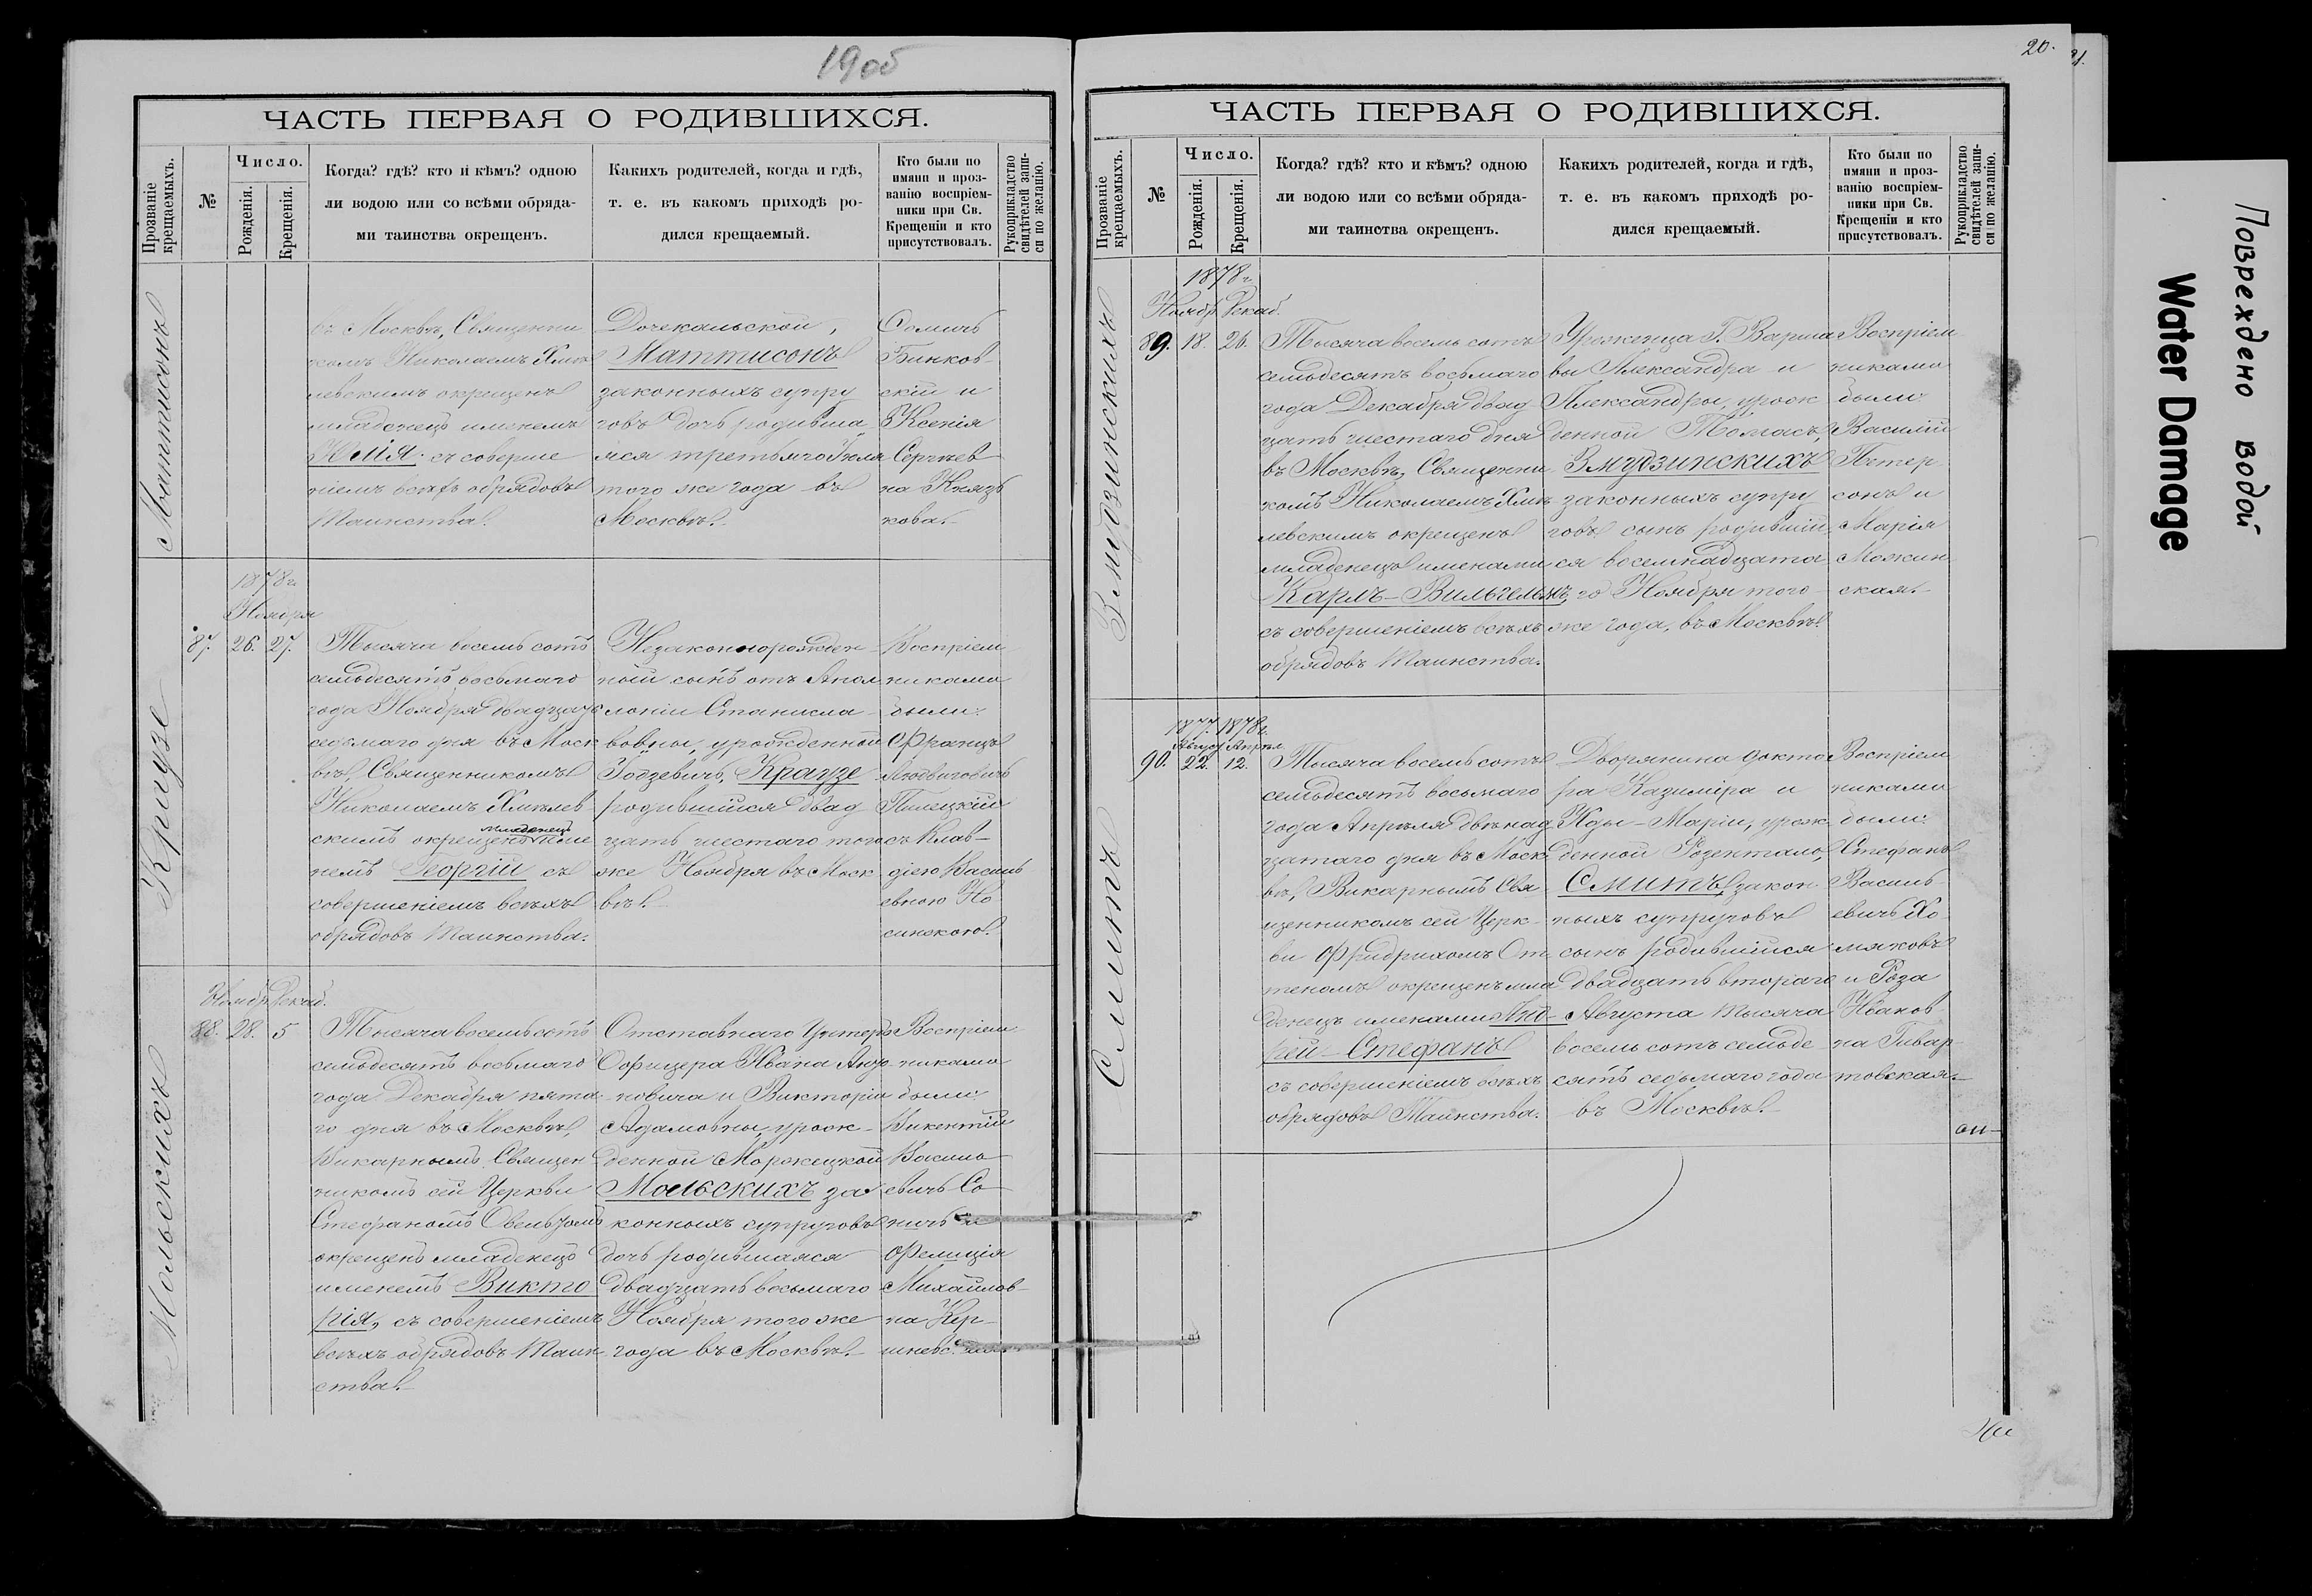 1906
ЧАСТЬ ПЕРВАЯ О РОДИВШИХСЯ.
Прозваніе крещаемыхъ.
№
Число.
Рожденія.
Крещенія.
Когда? гдѣ? кто и кѣмъ? одною
ли водою или со всѣми обряда-
ми таинства окрещенъ.
Какихъ родителей, когда и гдѣ,
т. е. въ какомъ приходѣ ро-
дился крещаемый.
Кто были по
имяни и проз-
ванію воспріем-
ники при Св.
Крещеніи и кто
присутствовалъ.
Рукоприкладство
свидѣтелей запи-
си по желанію.
Маттисонъ
въ Москвѣ, Священни
комъ Николаемъ Хмѣ
левскимъ окрещенъ
младенецъ именемъ
Юлія съ соверше
ніемъ всѣхъ обрядовъ
Таинства.
Дочекальской,
Маттисонъ
законныхъ супру
говъ дочь родивша
яся третьяго Іюля
того же года въ
Москвѣ.
Бинков
скій и
Ксенія
Сергѣев
на Князь
кова.
Краузе
1878 г.
Ноября
87. 26. 27.
Тысяча восемь сотъ
семьдесятъ восьмаго
года Ноября двадцать
седьмаго дня въ Моск
вѣ, Священникомъ
Николаемъ Хмѣлев
младенецъ
скимъ окрещенъ име
немъ Георгій съ
совершеніемъ всѣхъ
обрядовъ Таинства.
Незаконнорожден
ный сынъ отъ Апол
лоніи Станисла
вовны, урожденной
Краузе
родившійся двад
цать шестаго того
же Ноября въ Моск
вѣ.
Воспріем
никами
были:
Францъ
Людвиговичъ
Пилецкій
съ Клав-
діею Василь
евною Но
синскою.
Мольскихъ
Ноябр. Декаб.
88. 28. 5
Тысяча восемь сотъ
семьдесятъ восьмаго
года Декабря пята
го дня въ Москвѣ,
Викарнымъ Священ
никомъ сей Церкви
Стефаномъ
окрещенъ младенецъ
именемъ Викто
рія, съ совершеніемъ
всѣхъ обрядовъ Таин
ства.
Отставнаго Унтеръ
Офицера Ивана Анто
новича и Викторіи
Адамовны, урож-
денной Моржецкой
Мольскихъ за
конныхъ супруговъ
дочь родившаяся
двадцать восьмаго
Ноября того же
года въ Москвѣ.
Воспріем
никами
были:
Викентій
Василь
евичъ Со
ничъ и
Фелиція
Михайлов-
на
20.
21.
ЧАСТЬ ПЕРВАЯ О РОДИВШИХСЯ.
Прозваніе крещаемыхъ.
№
Число.
Рожденія.
Крещенія.
Когда? гдѣ? кто и кѣмъ? одною
ли водою или со всѣми обряда-
ми таинства окрещенъ.
Какихъ родителей, когда и гдѣ,
т. е. въ какомъ приходѣ ро-
дился крещаемый.
Кто были по
имяни и проз-
ванію воспріем-
ники при Св.
Крещеніи и кто
присутствовалъ.
Рукоприкладство
свидѣтелей запи-
си по желанію.
Змудзинскихъ
1878 г.
Ноябр. Декаб.
89. 18. 26.
Тысяча восемь сотъ
семьдесятъ восьмаго
года Декабря двад
цать шестаго дня
въ Москвѣ, Священни
комъ Николаемъ Хмѣ
левскимъ окрещенъ
младенецъ именами
Карлъ-Вильгельмъ,
съ совершеніемъ всѣхъ
обрядовъ Таинства.
Уроженца Г. Варша
вы Александра и
Александры, урож
денной Томасъ,
Змудзинскихъ
законныхъ супру
говъ сынъ родившій
ся восемнадцата
го Ноября того
же года, въ Москвѣ.
Воспріем
никами
были:
Василій
Петер
сонъ и
Марія
Можин
ская.
Смитъ
1877. 1878 г.
Август. Апрѣл.
90. 22. 12.
Тысяча восемь сотъ
семьдесятъ восьмаго
года Апрѣля двѣнад
цатаго дня въ Моск
вѣ, Викарнымъ Свя
щенникомъ сей Церк-
ви Фридрихомъ От
теномъ окрещенъ мла
денецъ именами Анд-
рей-Стефанъ
съ совершеніемъ всѣхъ
обрядовъ Таинства.
Дворянина докто
ра Казиміра и
Иды-Маріи, урож
денной Розенталь,
Смитъ, закон
ныхъ супруговъ
сынъ родившійся
двадцать втораго
Августа тысяча
восемь сотъ семьде
сятъ седьмаго года
въ Москвѣ.
Воспріем
никами
были:
Стефанъ
Василь
евичъ Хо
мяковъ
и Роза
Иванов
на Гивар
товская.
Повреждено водой
Water Damage